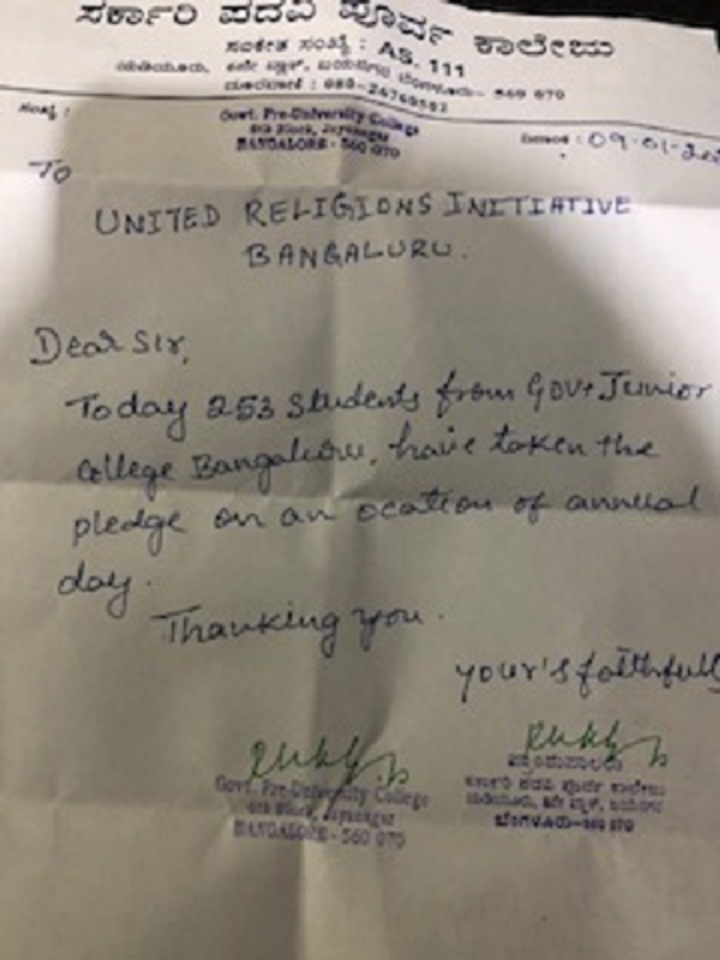 ಸರ್ಕಾರಿ ಪದವಿ ಪೂರ್ವ ಕಾಲೇಜು
ಸಂಕೇತ ಸಂಖ್ಯೆ : AS. 111
ಯಡಿಯೂರು, 6ನೇ ಬ್ಲಾಕ್, ಜಯನಗರ ಬೆಂಗಳೂರು- 560 070
ದೂರವಾಣಿ : 080-26760503
ಸಂಖ್ಯೆ :
Govt. Pre-University College
6th Block, Jayanagar
BANGALORE - 560 070
ದಿನಾಂಕ : 09-01-20
To
UNITED RELIGIONS INITIATIVE
BANGALURU.
Dear Sir,
Today 253 Students from Govt Junior
College Bangaluru, have taken the
pledge on an ocation of annual
day.
Thanking you.
your's faithfull
Govt. Pre-University College
6th Block, Jayanagar
BANGALORE - 560 070
ಪ್ರಾಂಶುಪಾಲರು
ಸರ್ಕಾರಿ ಪದವಿ ಪೂರ್ವ ಕಾಲೇಜು
ಯಡಿಯೂರು, 6ನೇ ಬ್ಲಾಕ್, ಜಯನಗರ
ಬೆಂಗಳೂರು-560 070